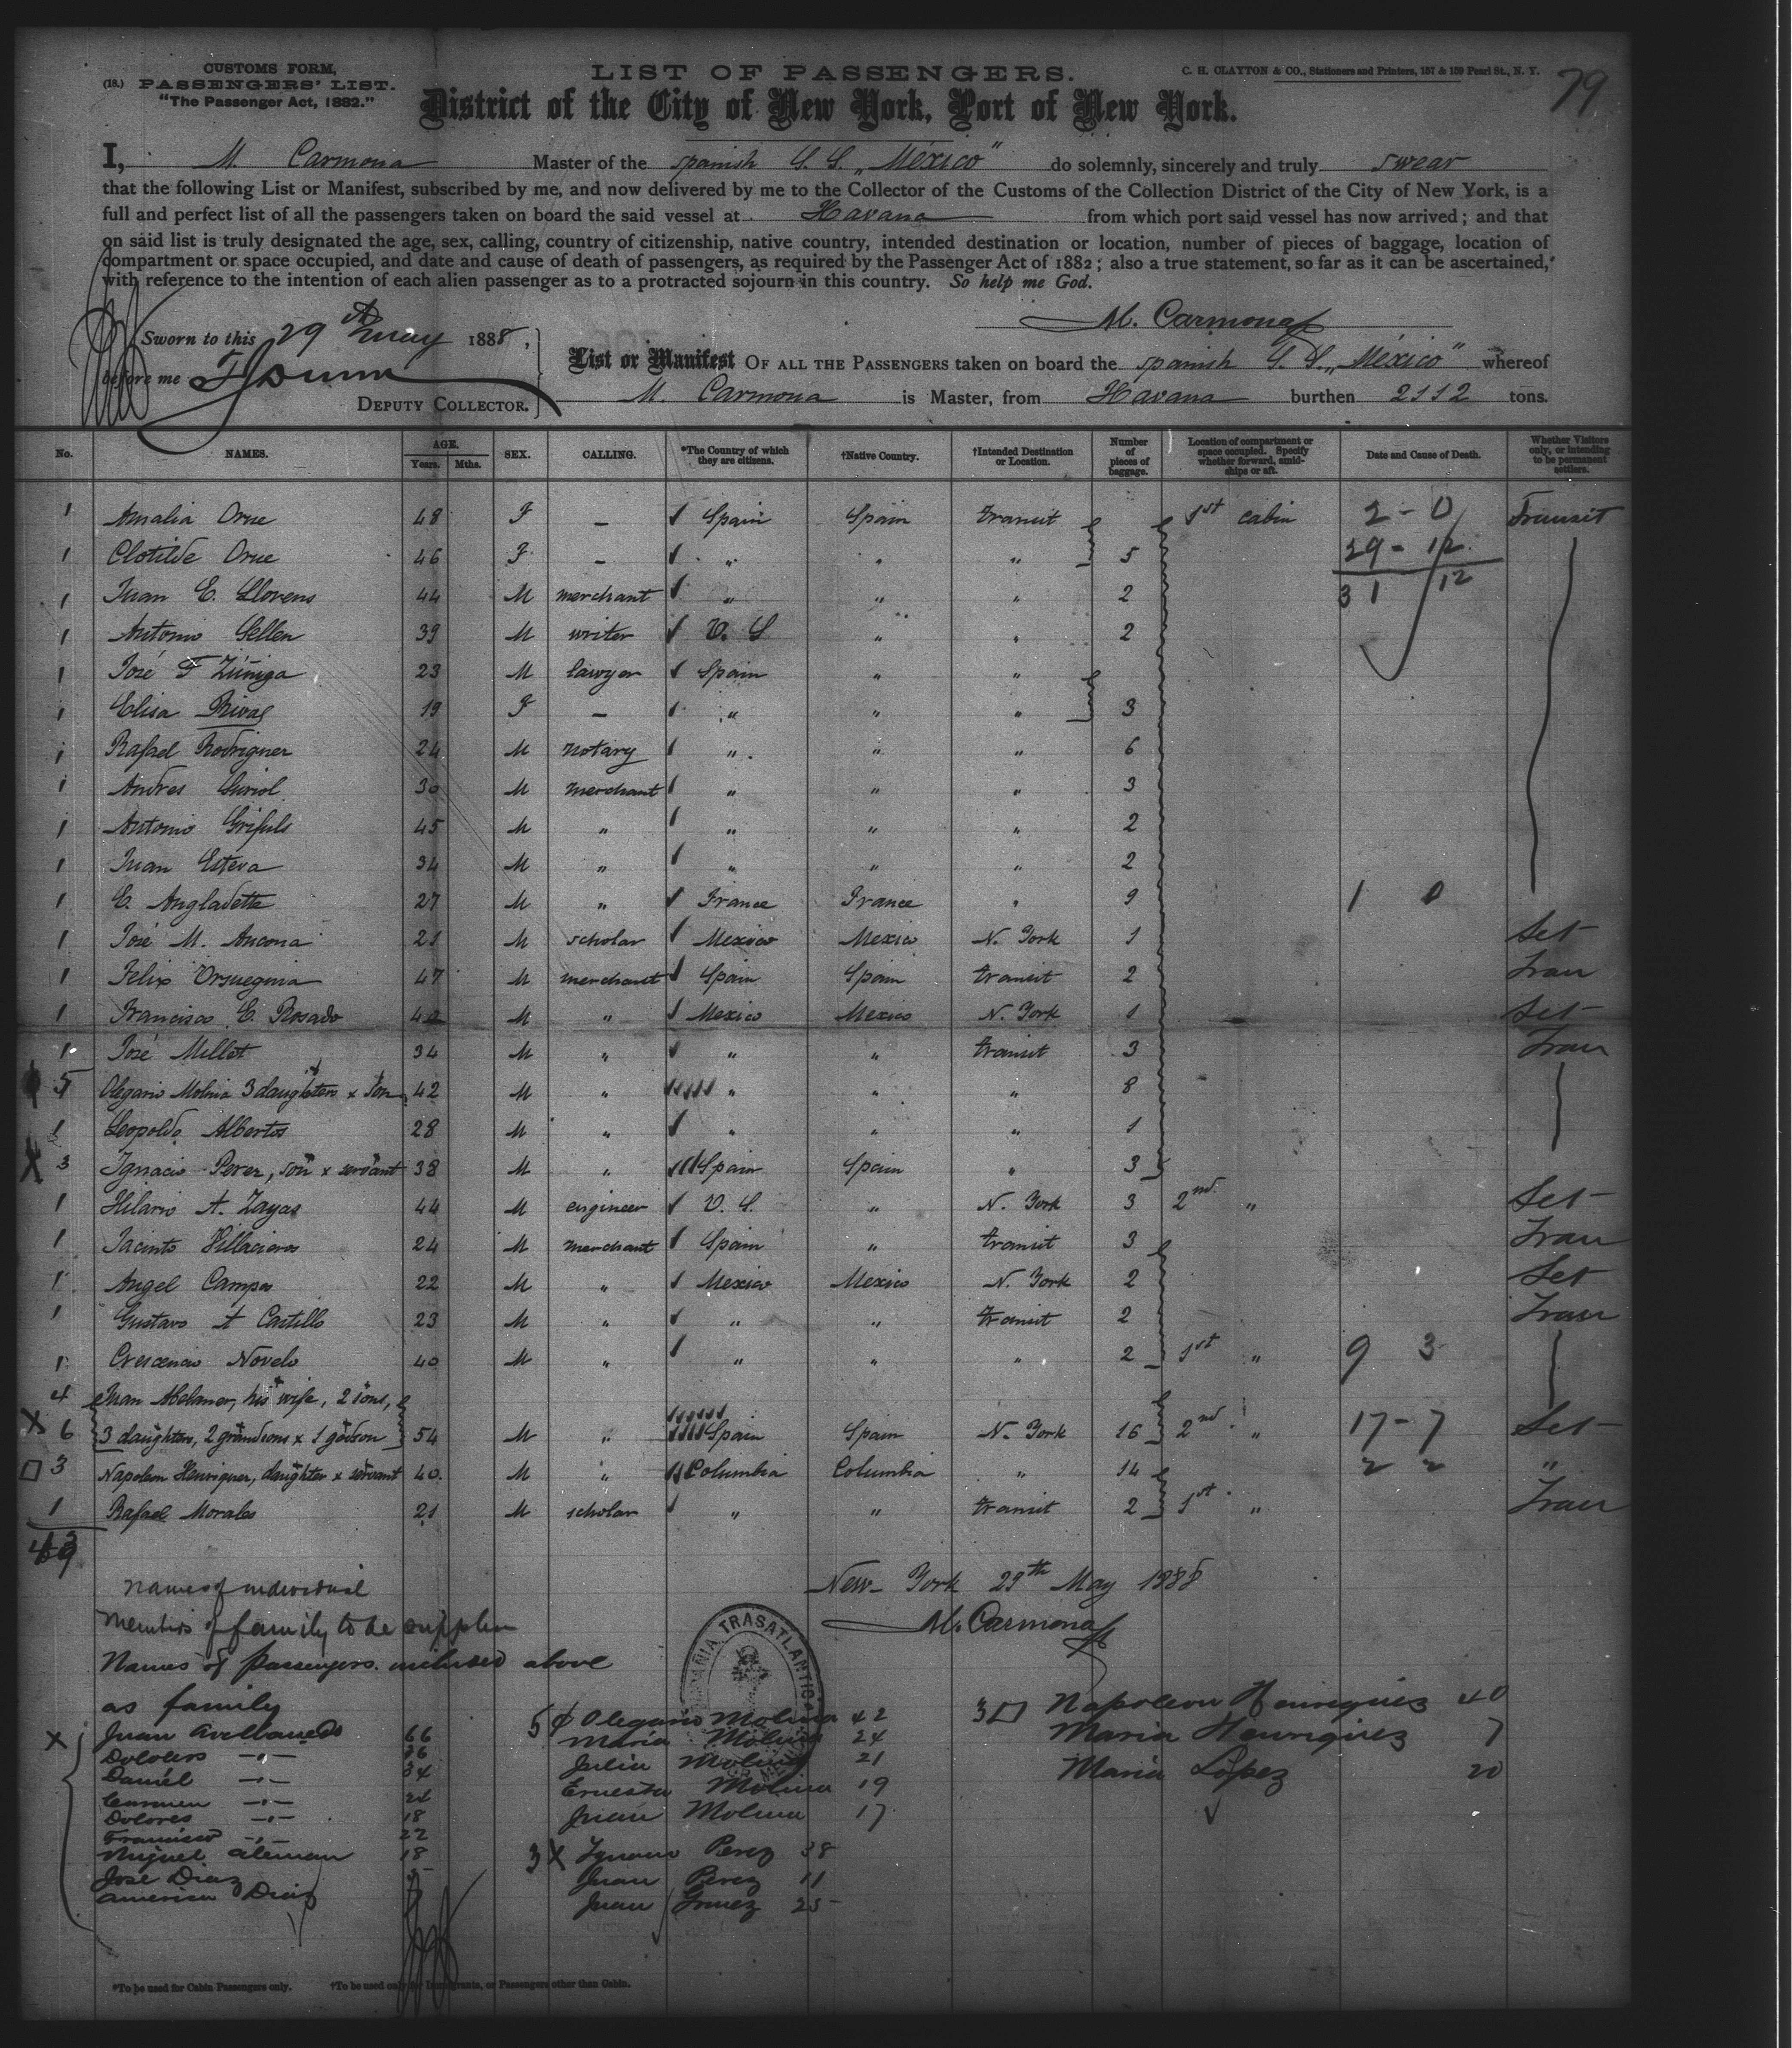 CUSTOMS FORM,
(18.) PASSENGERS' LIST.
"The Passenger Act, 1882."
LIST OF PASSENGERS.
C. H. CLAYTON & CO., Stationers and Printers, 157 & 159 Pearl St., N. Y.
79
District of the City of New York, Port of New York.
I, M. Carmona Master of the spanish S. S. "México" do solemnly, sincerely and truly swear
that the following List or Manifest, subscribed by me, and now delivered by me to the Collector of the Customs of the Collection District of the City of New York, is a
full and perfect list of all the passengers taken on board the said vessel at Havana from which port said vessel has now arrived; and that
on said list is truly designated the age, sex, calling, country of citizenship, native country, intended destination or location, number of pieces of baggage, location of
compartment or space occupied, and date and cause of death of passengers, as required by the Passenger Act of 1882; also a true statement, so far as it can be ascertained,
with reference to the intention of each alien passenger as to a protracted sojourn in this country. So help me God.
M. Carmona
Sworn to this 29th May 1888,
before me
DEPUTY COLLECTOR.
List or Manifest OF ALL THE PASSENGERS taken on board the spanish S. S. "México" whereof
M. Carmona is Master, from Havana burthen 2112 tons.
No. NAMES. AGE. Years. Mths. SEX. CALLING. *The Country of which they are citizens. †Native Country. †Intended Destination or Location. Number of pieces of baggage. Location of compartment or space occupied. Specify whether forward, amidships or aft. Date and Cause of Death. Whether Visitors only, or intending to be permanent settlers.
1 Amalia Orue 48 F – Spain Spain transit 1st cabin 2 - 0 Transit
1 Clotilde Orue 46 F – " " " 5 29 - 12
1 Juan E. Llovens 44 M merchant " " " 2 31 12
1 Antonio Sellen 39 M writer U. S. " " 2
1 José F Zúñiga 23 M lawyer Spain " "
1 Elisa Rivas 19 F – " " " 3
1 Rafael Rodriguez 24 M notary " " " 6
1 Andres Suriol 30 M merchant " " " 3
1 Antonio Grifuls 45 M " " " " 2
1 Juan Esteva 34 M " " " " 2
1 E. Angladetta 27 M " France France " 9 1 0
1 José M. Ancona 21 M scholar Mexico Mexico N. York 1 Set
1 Felix 47 M merchant Spain Spain transit 2 Tran
1 Francisco E. Rosado 42 M " Mexico Mexico N. York 1 Set
1 José Millet 34 M " " " transit 3 Tran
5 Olegario Molina 3 daughters x son 42 M " " " " 8
1 Leopoldo Albertos 28 M " " " " 1
X 3 Ignacio Perez, son x servant 38 M " Spain Spain " 3
1 Hilario A. Zayas 44 M engineer U. S. " N. York 3 2nd " Set
1 Jacinto 24 M merchant Spain " transit 3 Tran
1 Angel Campos 22 M " Mexico Mexico N. York 2 Set
1 Gustavo A Castillo 23 M " " " transit 2 Tran
1 Crescencio Novelo 40 M " " " " 2 1st " 9 3
4 Juan his wife, 2 sons,
X 6 3 daughters, 2 grandsons x 1 godson 54 M " Spain Spain N. York 16 2nd " 17 - 7 Set
3 Napoleon Henriquez, daughter x servant 40. M " Columbia Columbia " 14 2 2 "
1 Rafael Morales 21 M scholar " " transit 2 1st " Tran
names of individual
New-York 29th May 1888
members of family to be
M. Carmona
Names of passengers included above
as family
COMPAÑIA TRASATLANTICA
X Juan Avellaneda 66
Dolores -"- 36
Daniel -"- 34
Carmen -"-
Dolores -"- 18
Francisco -"- 22
Miguel Aleman 18
José Diaz 5
America Diaz
5 Olegario Molina 42
Maria Molina 24
Julia Molina 21
Ernesta Molina 19
Juan Molina 17
3 X Ignacio Perez 38
Juan Perez 11
Juan Gomez 25
3 Napoleon Henriquez 40
Maria Henriquez 7
Maria Lopez 20
*To be used for Cabin Passengers only. †To be used only for Immigrants, or Passengers other than Cabin.